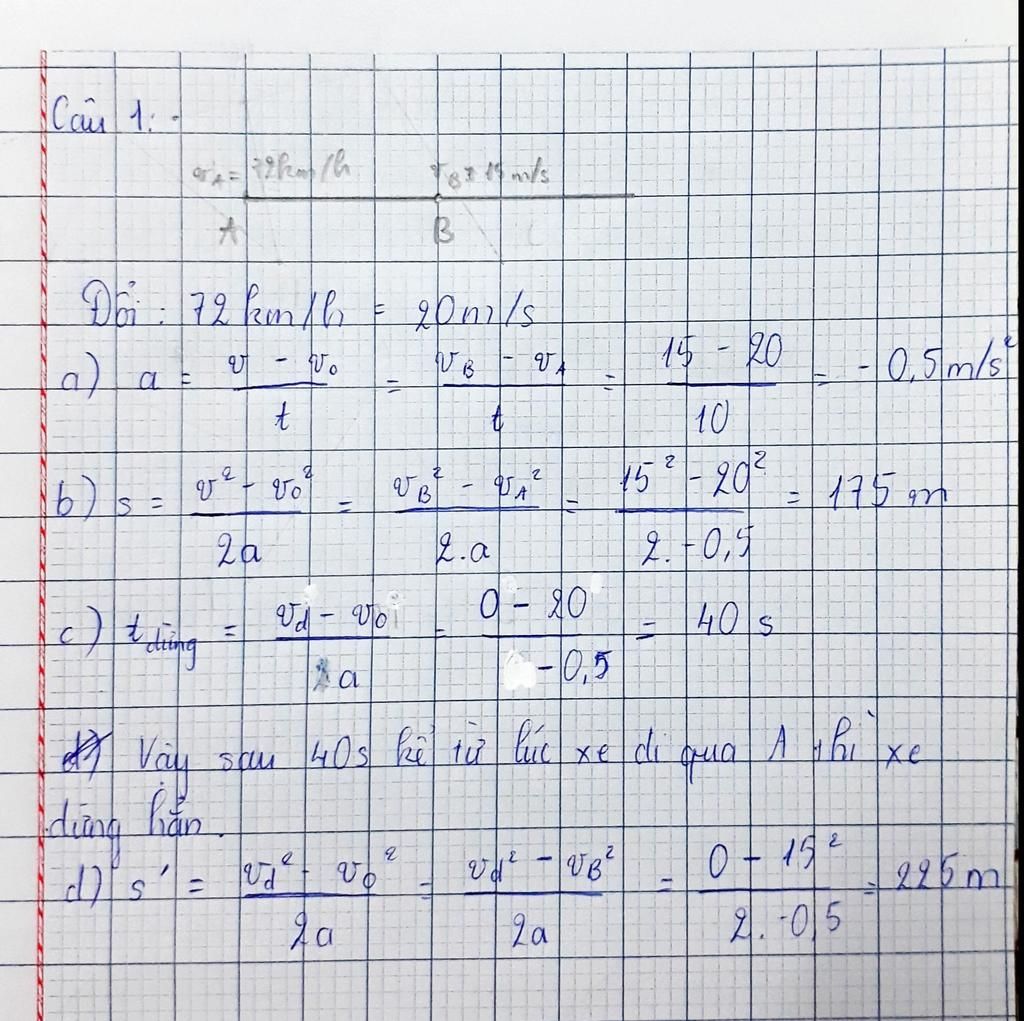 Câu 1:
v_A = 72km/h v_B = 15 m/s
A B
Đổi: 72 km/h = 20m/s
a) a = (v - v₀)/t = (v_B - v_A)/t = (15 - 20)/10 = - 0,5 m/s²
b) s = (v² - v₀²)/2a = (v_B² - v_A²)/2.a = (15² - 20²)/2.-0,5 = 175 m
c) t dừng = (v_d - v₀)/a = (0 - 20)/-0,5 = 40 s
Vậy sau 40s kể từ lúc xe đi qua A thì xe
dừng hẳn.
d) s' = (v_d² - v₀²)/2a = (v_d² - v_B²)/2a = (0 - 15²)/2.-0,5 = 225 m